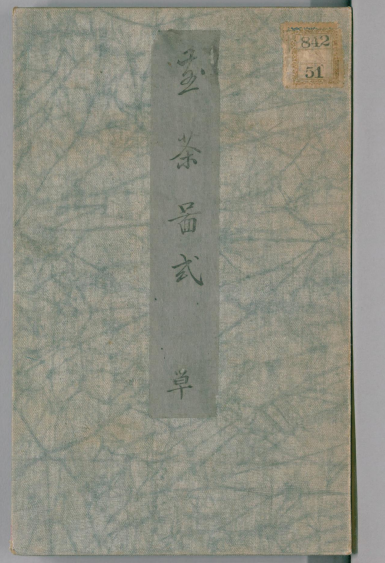 842
51
茶啚式
草